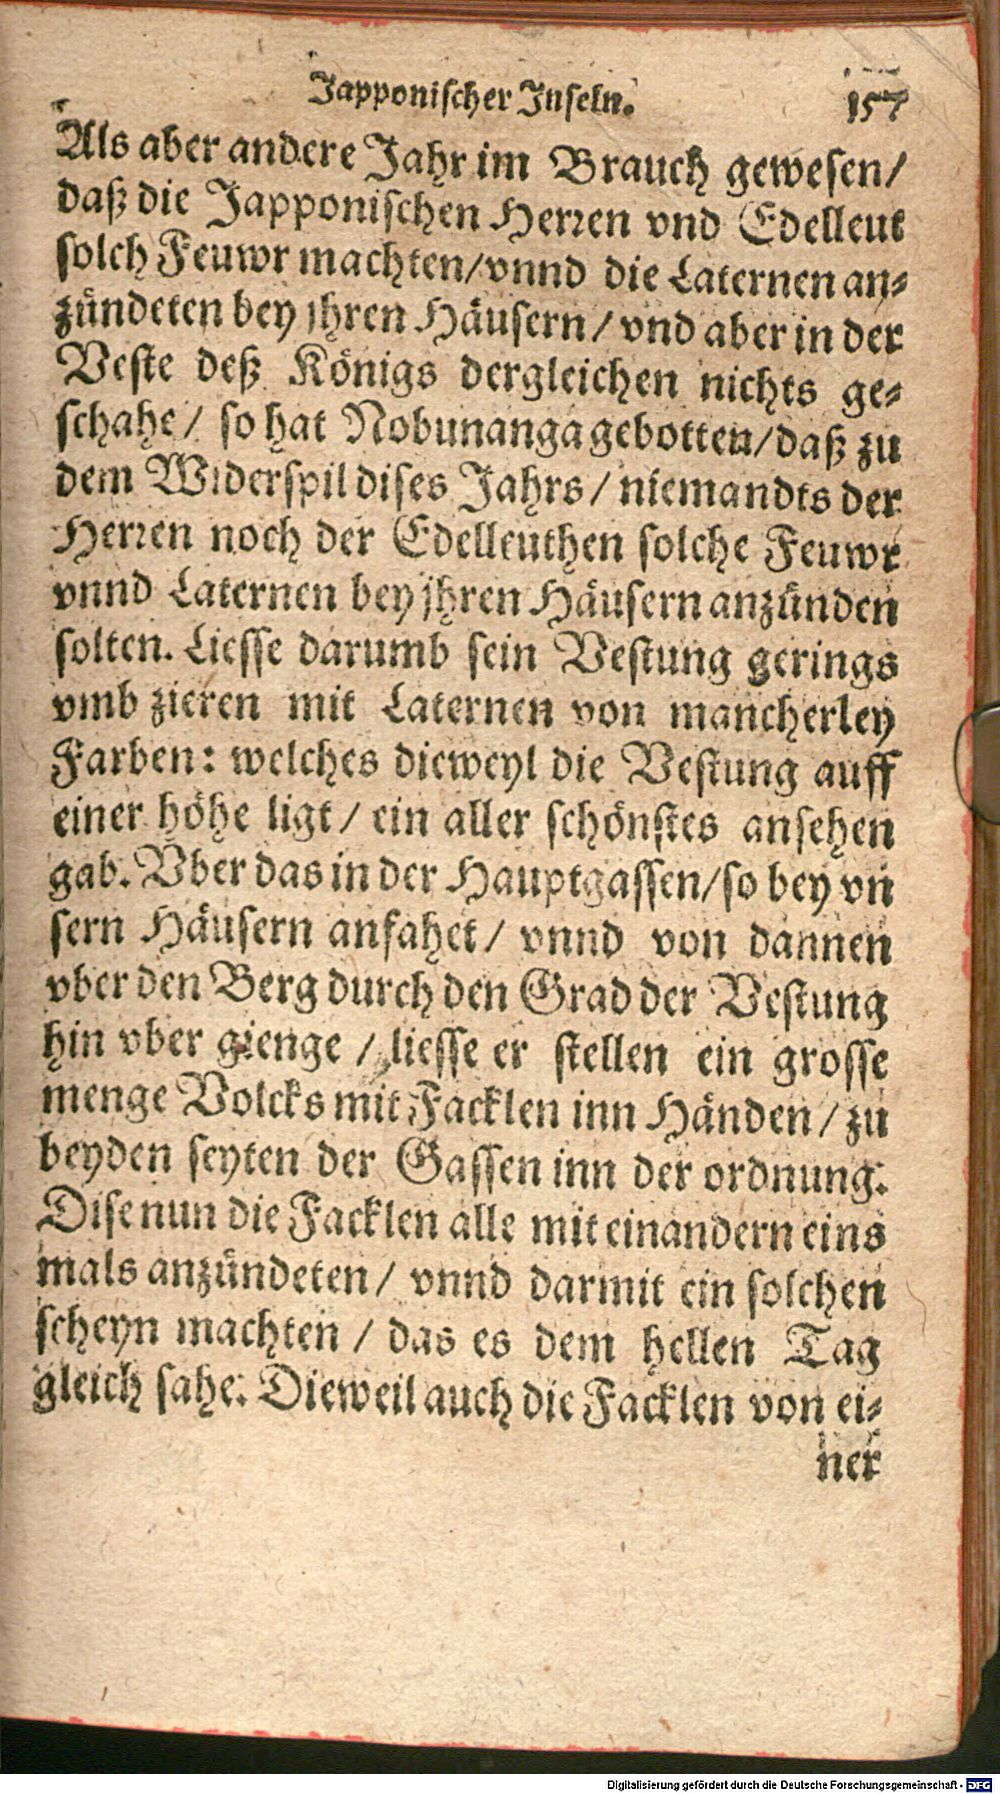 Japponischer Inseln. 157
Als aber andere Jahr im Brauch gewesen/
daß die Japponischen Herren vnd Edelleut
solch Feuwr machten/vnnd die Laternen an-
zündeten bey jhren Häusern/ vnd aber in der
Veste deß Königs dergleichen nichts ge-
schahe/ so hat Nobunanga gebotten/daß zu
dem Widerspil dises Jahrs/ niemandts der
Herren noch der Edelleuthen solche Feuwr
vnnd Laternen bey jhren Häusern anzünden
solten. Liesse darumb sein Vestung gerings
vmb zieren mit Laternen von mancherley
Farben: welches dieweyl die Vestung auff
einer höhe ligt/ ein aller schönstes ansehen
gab. Vber das in der Hauptgassen/so bey vn
sern Häusern anfahet/ vnnd von dannen
vber den Berg durch den Grad der Vestung
hin vber gienge / liesse er stellen ein grosse
menge Volcks mit Facklen inn Händen/ zu
beyden seyten der Gassen inn der ordnung:
Dise nun die Facklen alle mit einandern eins
mals anzündeten/ vnnd darmit ein solchen
scheyn machten / das es dem hellen Tag
gleich sahe: Dieweil auch die Facklen von ei-
ner
Digitalisierung gefördert durch die Deutsche Forschungsgemeinschaft - DFG